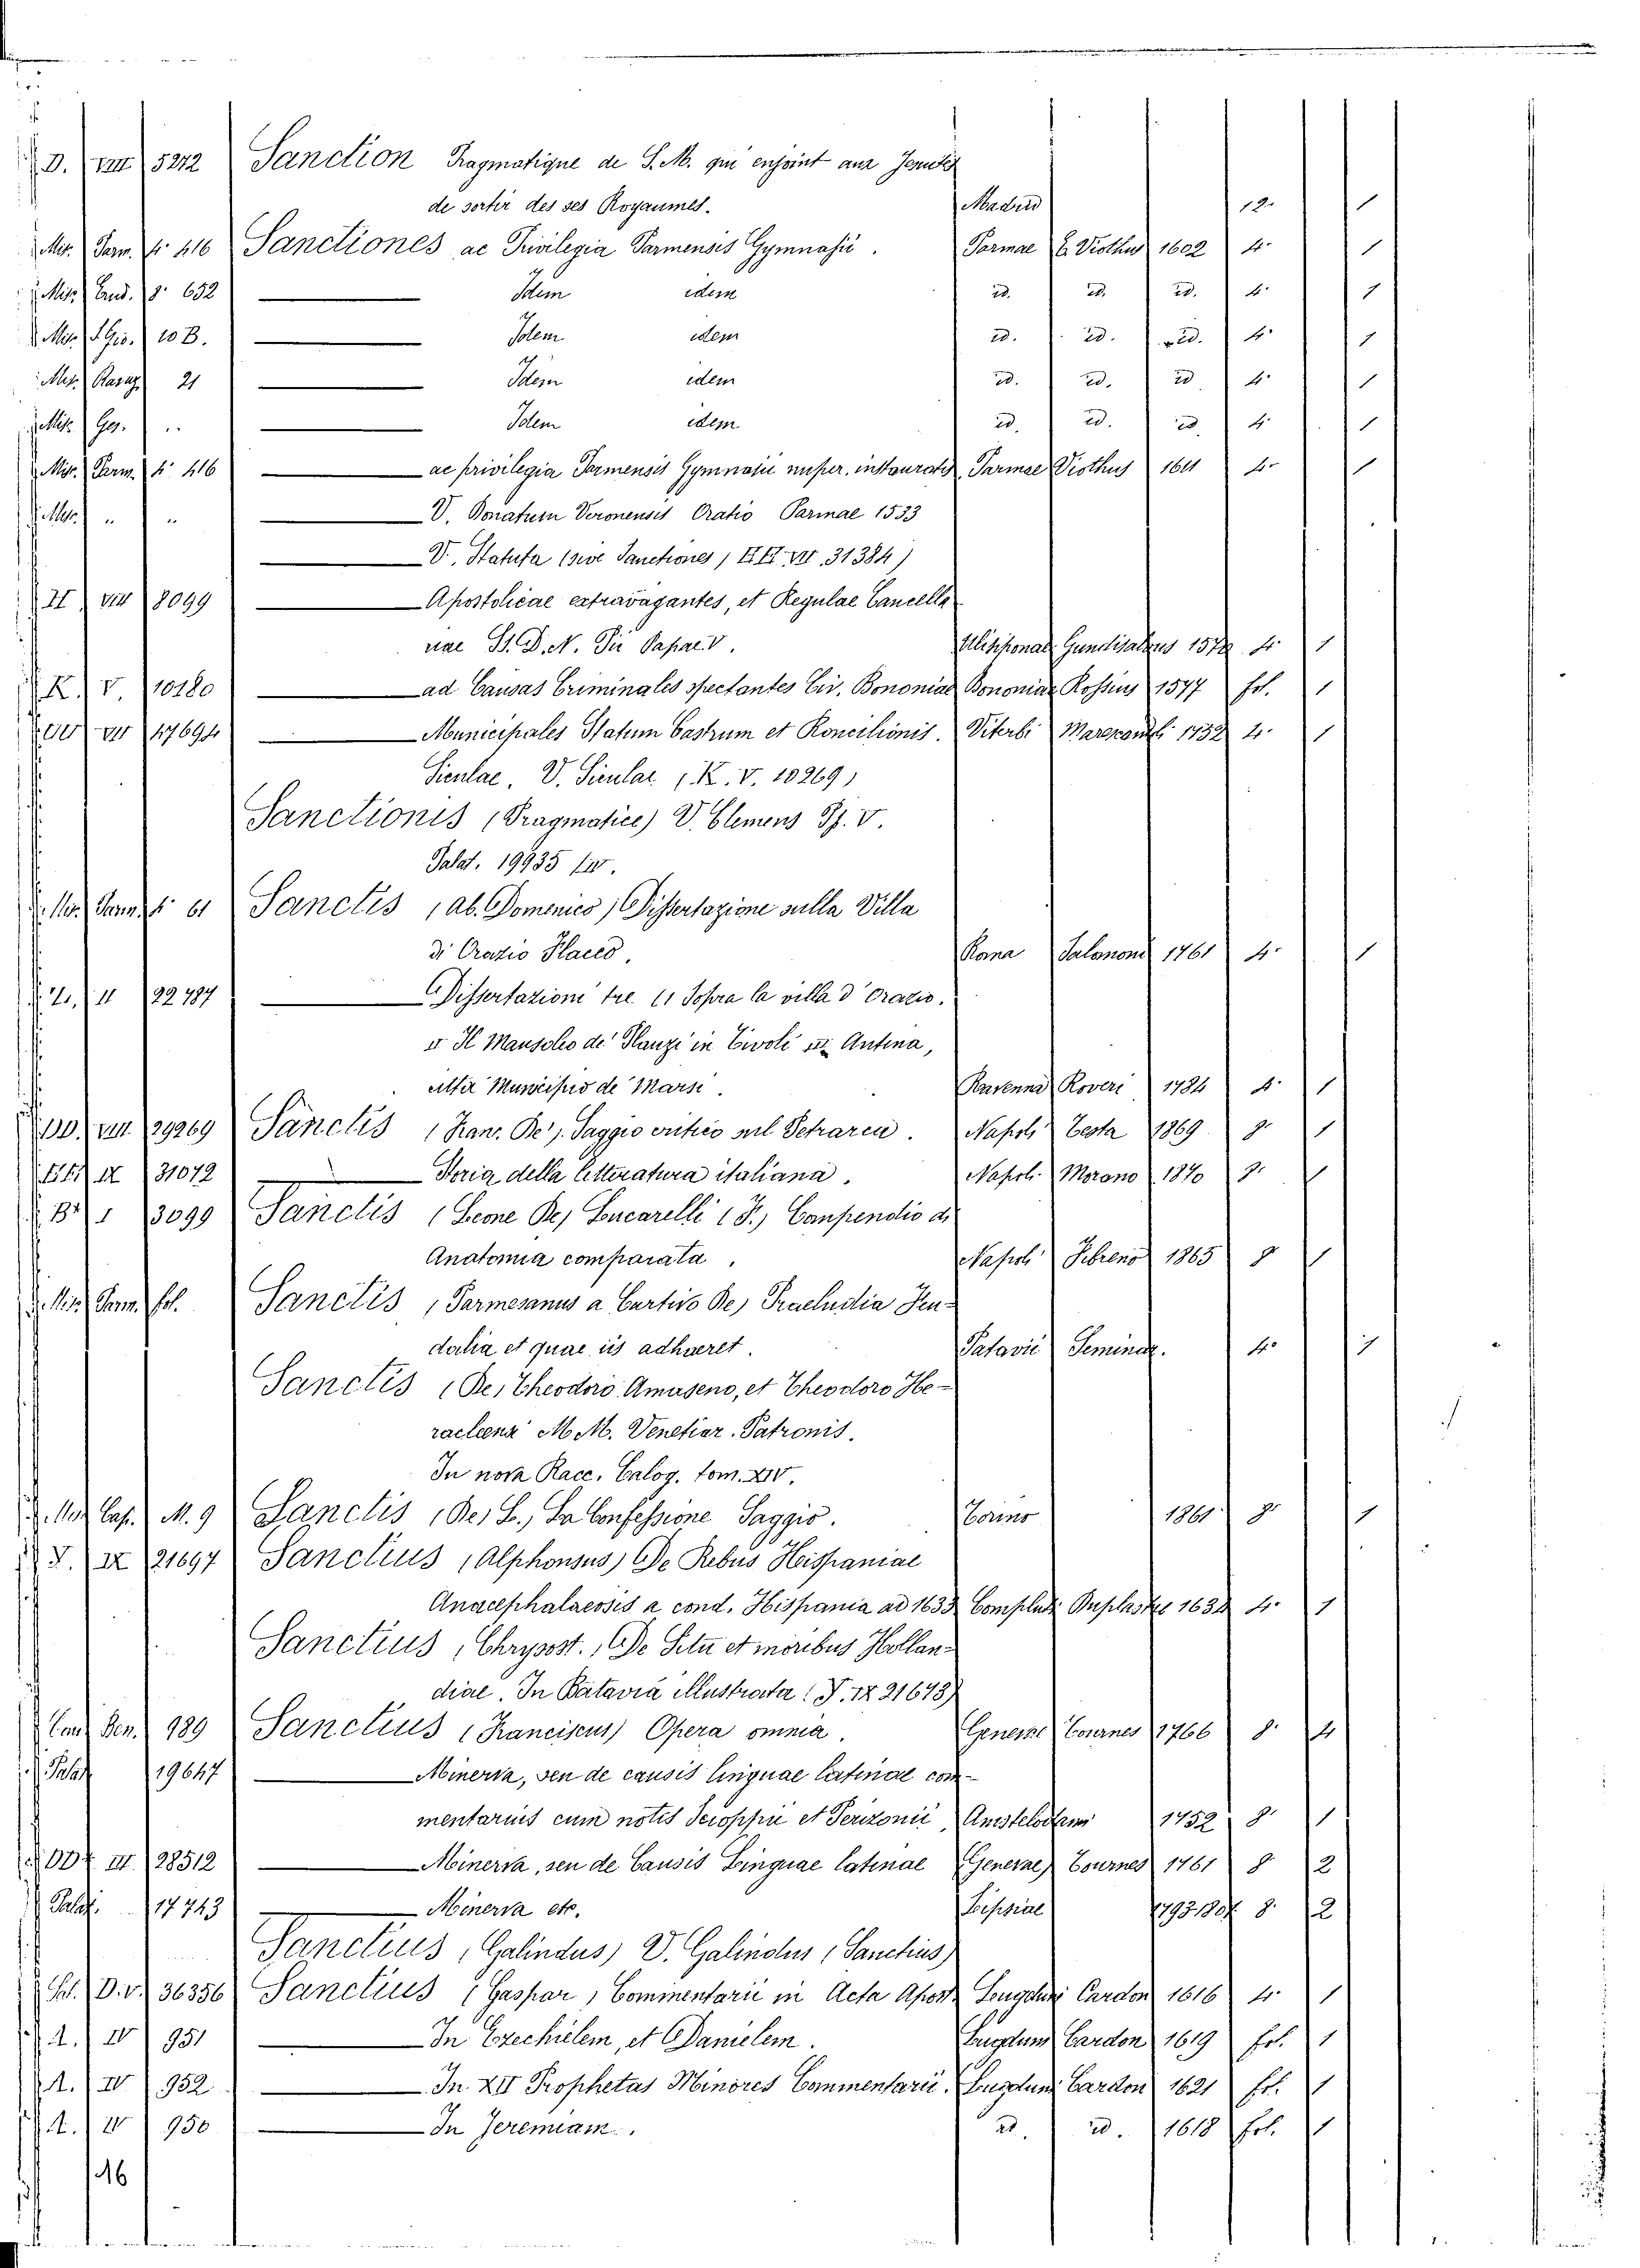 D. VIII 5242 Sanction Pragmatique de S. M. qui enjoint aux Jesuites
de sortir des ses Royaumes. Madrid 12. 1
Mis. Parm. 4º 416 Sanctiones ac Privilegia Parmensis Gymnasii. Parmae E. Viothus 1602 4. 1
Mis. Erud. 8º 652 — Idem idem id. id. id. 4. 1
Mis. 10 B. — Idem idem id. id. id. 4. 1
Mis. 21 — Idem idem id. id. id 4. 1
Mis. Ges. .. — Idem idem id. id. id. 4. 1
Mis. Parm. 4º 416 — ac privilegia Parmensis Gymnasii nuper. instauratis Parmae Viothus 1611 4. 1
Mis. " " — V. Donatum Veronensis Oratio Parmae 1533
— V. Statuta (sive Sanctiones) VII 31384)
VIII 8099 — Apostolicae extravagantes, et Regulae Cancella
riae S. D. N. Pii Papae V. Ulissponae 4. 1
K. V. 10180 — ad Causas Criminales spectantes Civ. Bononiae Bononiae Rossius 1577 fol. 1
VII 17694 — Municipales Statum Castrum et Roncilionis. Viterbi 4. 1
Siculae. V. Siculae (K. V. 10269)
Sanctionis (Pragmatice) V. Clemens Pp. V.
Palat. 19935 IV.
Mis. Parm. 4º 61 Sanctis (ab. Domenico) Dissertazione sulla Villa
di Orazio Flacco. Roma Salomoni 1761 4. 1
II 22787 — Dissertazioni tre (1 Sopra la villa d'Orazio.
II Il Mausoleo de' Plauzi in Tivoli III Antina,
città Municipio de' Marsi. Ravenna Roveri 1784 4. 1
DD. VIII 29269 Sanctis (Franc. De'). Saggio critico sul Petrarca. Napoli Testa 1869 8. 1
IX 31072 — Storia della letteratura italiana. Napoli Morano 1870 8. 1
I 3099 Sanctis (Leone De) Lucarelli (F.) Compendio di
Anatomia comparata. Napoli Fibreno 1865 8 1
Mis. Parm. fol. Sanctis (Parmesanus a Curtivo De) Praeludia Feu-
dalia et quae iis adhaeret. Patavii Seminar. 4. 1
Sanctis (De) Theodoro Amaseno, et Theodoro He-
racleena M M. Venetiar. Patronis.
In nova Racc. Calog. tom. XIV.
Mis. Cas. M. 9 Sanctis (De) L., La Confessione Saggio. Torino 1861 8. 1
IX 21697 Sanctius (Alphonsus) De Rebus Hispaniae
Anacephalaeosis a cond. Hispania ad 1633 Compluti Duplastre 1634 4. 1
Sanctius (Chrysost.) De Situ et moribus Hollan-
diae. In Batavia illustrata (T. IX 21673)
989 Sanctius (Franciscus) Opera omnia. Genevae Tournes 1766 8. 4
Palat. 19647 — Minerva, seu de causis linguae latinae com-
mentarius cum notis Scioppii et Perizonii Amstelodami 1752 8. 1
DD. III 28512 — Minerva, seu de Causis Linguae latinae Genevae Tournes 1761 8 2
Palat. 17743 — Minerva etc. Lipsiae 1793.1804 8. 2
Sanctius (Galindus) V. Galindus (Sanctius)
Sal. D. V. 36356 Sanctius (Gaspar) Commentarii in Acta Apost. Lugduni Cardon 1616 4. 1
A. IV 951 — In Ezechielem, et Danielem. Lugduni Cardon 1619 fol. 1
A. IV 952 — In XII Prophetas Minores Commentarii. Lugduni Cardon 1621 fol. 1
A. IV 950 — In Jeremiam. id. id. 1618 fol. 1
46